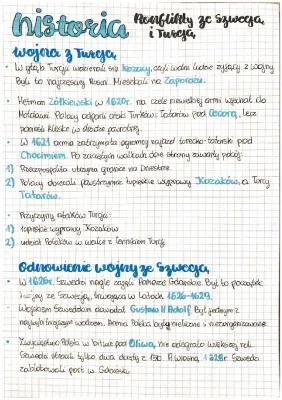 historia
Konflikty ze Szwecją
i Turcją
wojna z Turcją
• W głąb Turcji wdzierali się Kozacy, czyli wolni ludzie żyjący z wojny
Byli to najczęściej Rusini. Mieszkali na Zaporożu.
• Hetman Żółkiewski w 1620r. na czele niewielkiej armii wjechał do
Mołdawii. Polacy odparli ataki Turków Tatarów pod Cecorą, lecz
ponieśli klęskę w drodze powrotnej.
• W 1621 armia zatrzymała ogromny najazd turecko-tatarski pod
Chocimiem. Po zaciętych walkach obie strony zawarły pokój:
1) Rzeczpospolita utrzyma granicę na Dniestrze.
2) Polacy powstrzymać łupieskie wyprawy Kozaków, a Turcy
Tatarów.
• Przyczyny ataków Turcji:
1) łupieskie wyprawy Kozaków
2) udział Polaków w walce z Turcji
Odnowienie wojny ze Szwecją
• W 1626r. Szwedzi nagle zajęli Pomorze Gdańskie. Był to początek
wojny ze Szwecją, trwająca w latach 1626-1629.
• Wojskiem Szwedzkim dowodził Gustaw II Adolf. Był jednym z
najwybitniejszym wodzem. Armia Polska była nieliczna i niezorganizowana.
• Zwycięstwo Polski w bitwie pod Oliwą, nie odegrało większej roli.
Szwedzi stracili tylko dwa okręty z 150. A wiosną 1628r Szwedzi
zablokowali port w Gdańsku.